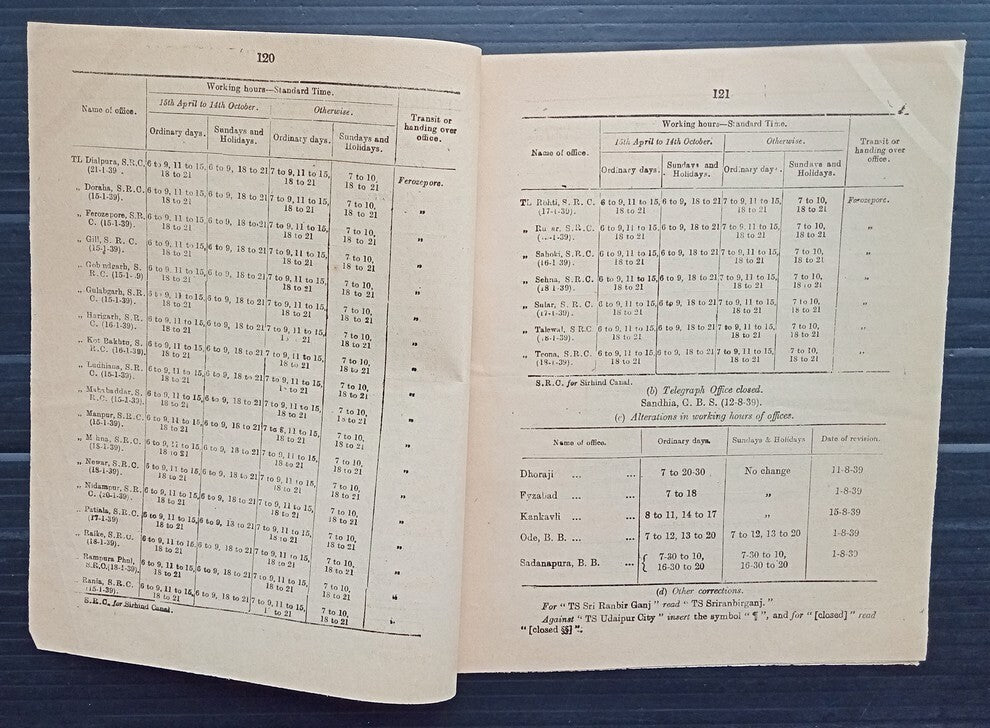 120
Working hours—Standard Time.
Name of office.
15th April to 14th October.
Otherwise.
Transit or handing over office.
Ordinary days.
Sundays and Holidays.
Ordinary days.
Sundays and Holidays.
TL Dialpura, S.R.C. 6 to 9, 11 to 15, 6 to 9, 18 to 21 7 to 9, 11 to 15, 7 to 10, Ferozepore.
(21-1-39 . 18 to 21 18 to 21 18 to 21
„ Doraha, S.R.C. 6 to 9, 11 to 15, 6 to 9, 18 to 21 7 to 9, 11 to 15, 7 to 10, „
(15-1-39). 18 to 21 18 to 21 18 to 21
„ Ferozepore, S.R. 6 to 9, 11 to 15, 6 to 9, 18 to 21 7 to 9, 11 to 15, 7 to 10, „
C. (15-1-39). 18 to 21 18 to 21 18 to 21
„ Gill, S. R. C. 6 to 9, 11 to 15, 6 to 9, 18 to 21 7 to 9, 11 to 15, 7 to 10, „
(15-1-39). 18 to 21 18 to 21 18 to 21
„ Gobindgarh, S. 6 to 9, 11 to 15, 6 to 9, 18 to 21 7 to 9, 11 to 15, 7 to 10, „
R. C. 18 to 21 18 to 21 18 to 21
„ Gulabgarh, S.R.C. 11 to 15, 6 to 9, 18 to 21 7 to 9, 11 to 15, 7 to 10, „
(15-1-39). 18 to 21 18 to 21 18 to 21
„ Harigarh, S.R. 6 to 9, 11 to 15, 6 to 9, 18 to 21 7 to 9, 11 to 15, 7 to 10, „
C. (16-1-39). 18 to 21 18 to 21
„ Kot Bakhto, S. 6 to 9, 11 to 15, 6 to 9, 18 to 21 7 to 9, 11 to 15, 7 to 10, „
R.C. (16-1-39). 18 to 21 18 to 21 18 to 21
„ Ludhiana, S.R. 6 to 9, 11 to 15, 6 to 9, 18 to 21 7 to 9, 11 to 15, 7 to 10, „
C. (15-1-39). 18 to 21 to 21 18 to 21
S.R. 6 to 9, 11 to 15, 6 to 9, 18 to 21 7 to 9, 11 to 15, 7 to 10, „
C. (15-1-39). 18 to 21 18 to 21 18 to 21
„ Manpur, S.R.C. 6 to 9, 11 to 15, 6 to 9, 18 to 21 7 to 9, 11 to 15, 7 to 10, „
(15-1-39). 18 to 21 18 to 21 18 to 21
S.R.C. 6 to 9, 11 to 15, 6 to 9, 18 to 21 7 to 9, 11 to 15, 7 to 10, „
18 to 21 18 to 21 18 to 21
„ Newar, S.R.C. 6 to 9, 11 to 15, 6 to 9, 18 to 21 7 to 9, 11 to 15, 7 to 10, „
(18-1-39). 18 to 21 18 to 21 18 to 21
„ Nidampur, S.R. 6 to 9, 11 to 15, 6 to 9, 18 to 21 7 to 9, 11 to 15, 7 to 10, „
C. 18 to 21 18 to 21 18 to 21
„ Patiala, S.R.C. 6 to 9, 11 to 15, 6 to 9, 13 to 21 7 to 9, 11 to 15, 7 to 10, „
(17-1-39) 18 to 21 18 to 21 18 to 21
„ Raike, S.R.C. 6 to 9, 11 to 15, 6 to 9, 18 to 21 7 to 9, 11 to 15, 7 to 10, „
(18-1-39). 18 to 21 18 to 21 18 to 21
„ Rampura Phul, 6 to 9, 11 to 15, 6 to 9, 18 to 21 7 to 9, 11 to 15, 7 to 10, „
S.R.C.(18-1-39). 18 to 21 18 to 21 18 to 21
„ Rania, S.R.C. 6 to 9, 11 to 15, 6 to 9, 18 to 21 7 to 9, 11 to 15, 7 to 10, „
(15-1-39). 18 to 21 to 21 18 to 21
S.R.C. for Sirhind Canal.
121
Working hours—Standard Time.
Name of office.
15th April to 14th October.
Otherwise.
Transit or handing over office.
Ordinary days.
Sundays and Holidays.
Ordinary days.
Sundays and Holidays.
TL Rohti, S. R. C. 6 to 9, 11 to 15, 6 to 9, 18 to 21 7 to 9, 11 to 15, 7 to 10, Ferozepore.
(17-1-39). 18 to 21 18 to 21 18 to 21
S. R. C. 6 to 9, 11 to 15, 6 to 9, 18 to 21 7 to 9, 11 to 15, 7 to 10, „
18 to 21 18 to 21 18 to 21
„ Sahoki, S. R. C. 6 to 9, 11 to 15, 6 to 9, 18 to 21 7 to 9, 11 to 15, 7 to 10, „
(16-1-39). 18 to 21 18 to 21 18 to 21
„ Sehna, S. R. C. 6 to 9, 11 to 15, 6 to 9, 18 to 21 7 to 9, 11 to 15, 7 to 10, „
(18-1-39). 18 to 21 18 to 21 18 to 21
„ Sular, S. R. C. 6 to 9, 11 to 15, 6 to 9, 18 to 21 7 to 9, 11 to 15, 7 to 10, „
(17-1-39). 18 to 21 18 to 21 18 to 21
„ Talewal, S R.C. 6 to 9, 11 to 15, 6 to 9, 18 to 21 7 to 9, 11 to 15, 7 to 10, „
18 to 21 18 to 21 18 to 21
„ Teona, S.R.C. 6 to 9, 11 to 15, 6 to 9, 18 to 21 7 to 9, 11 to 15, 7 to 10, „
(18-1-39). 18 to 21 18 to 21 18 to 21
S.R.C. for Sirhind Canal.
(b) Telegraph Office closed.
Sandhia, C. B. S. (12-8-39).
(c) Alterations in working hours of offices.
Name of office. Ordinary days. Sundays & Holidays Date of revision.
Dhoraji ... ... 7 to 20-30 No change 11-8-39
Fyzabad ... ... 7 to 18 „ 1-8-39
Kankavli ... ... 8 to 11, 14 to 17 „ 15-8-39
Ode, B. B. ... ... 7 to 12, 13 to 20 7 to 12, 13 to 20 1-8-39
Sadanapura, B. B. ... { 7-30 to 10, 7-30 to 10, 1-8-39
16-30 to 20 16-30 to 20
(d) Other corrections.
For “ TS Sri Ranbir Ganj ” read “ TS Sriranbirganj. ”
Against “ TS Udaipur City ” insert the symbol “ ¶ ”, and for “ [closed] ” read
“ [closed §§] ”.